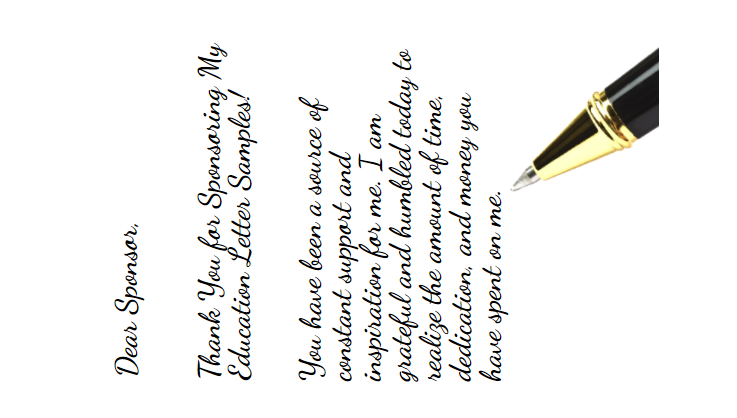 Dear Sponsor,
Thank You for Sponsoring My
Education Letter Samples!
You have been a source of
constant support and
inspiration for me. I am
grateful and humbled today to
realize the amount of time,
dedication, and money you
have spent on me.